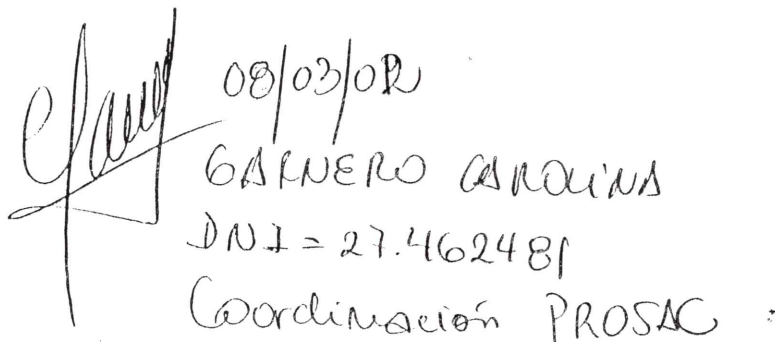 08/03/02
GARNERO CAROLINA
DNI = 27.462481
Coordinación PROSAC